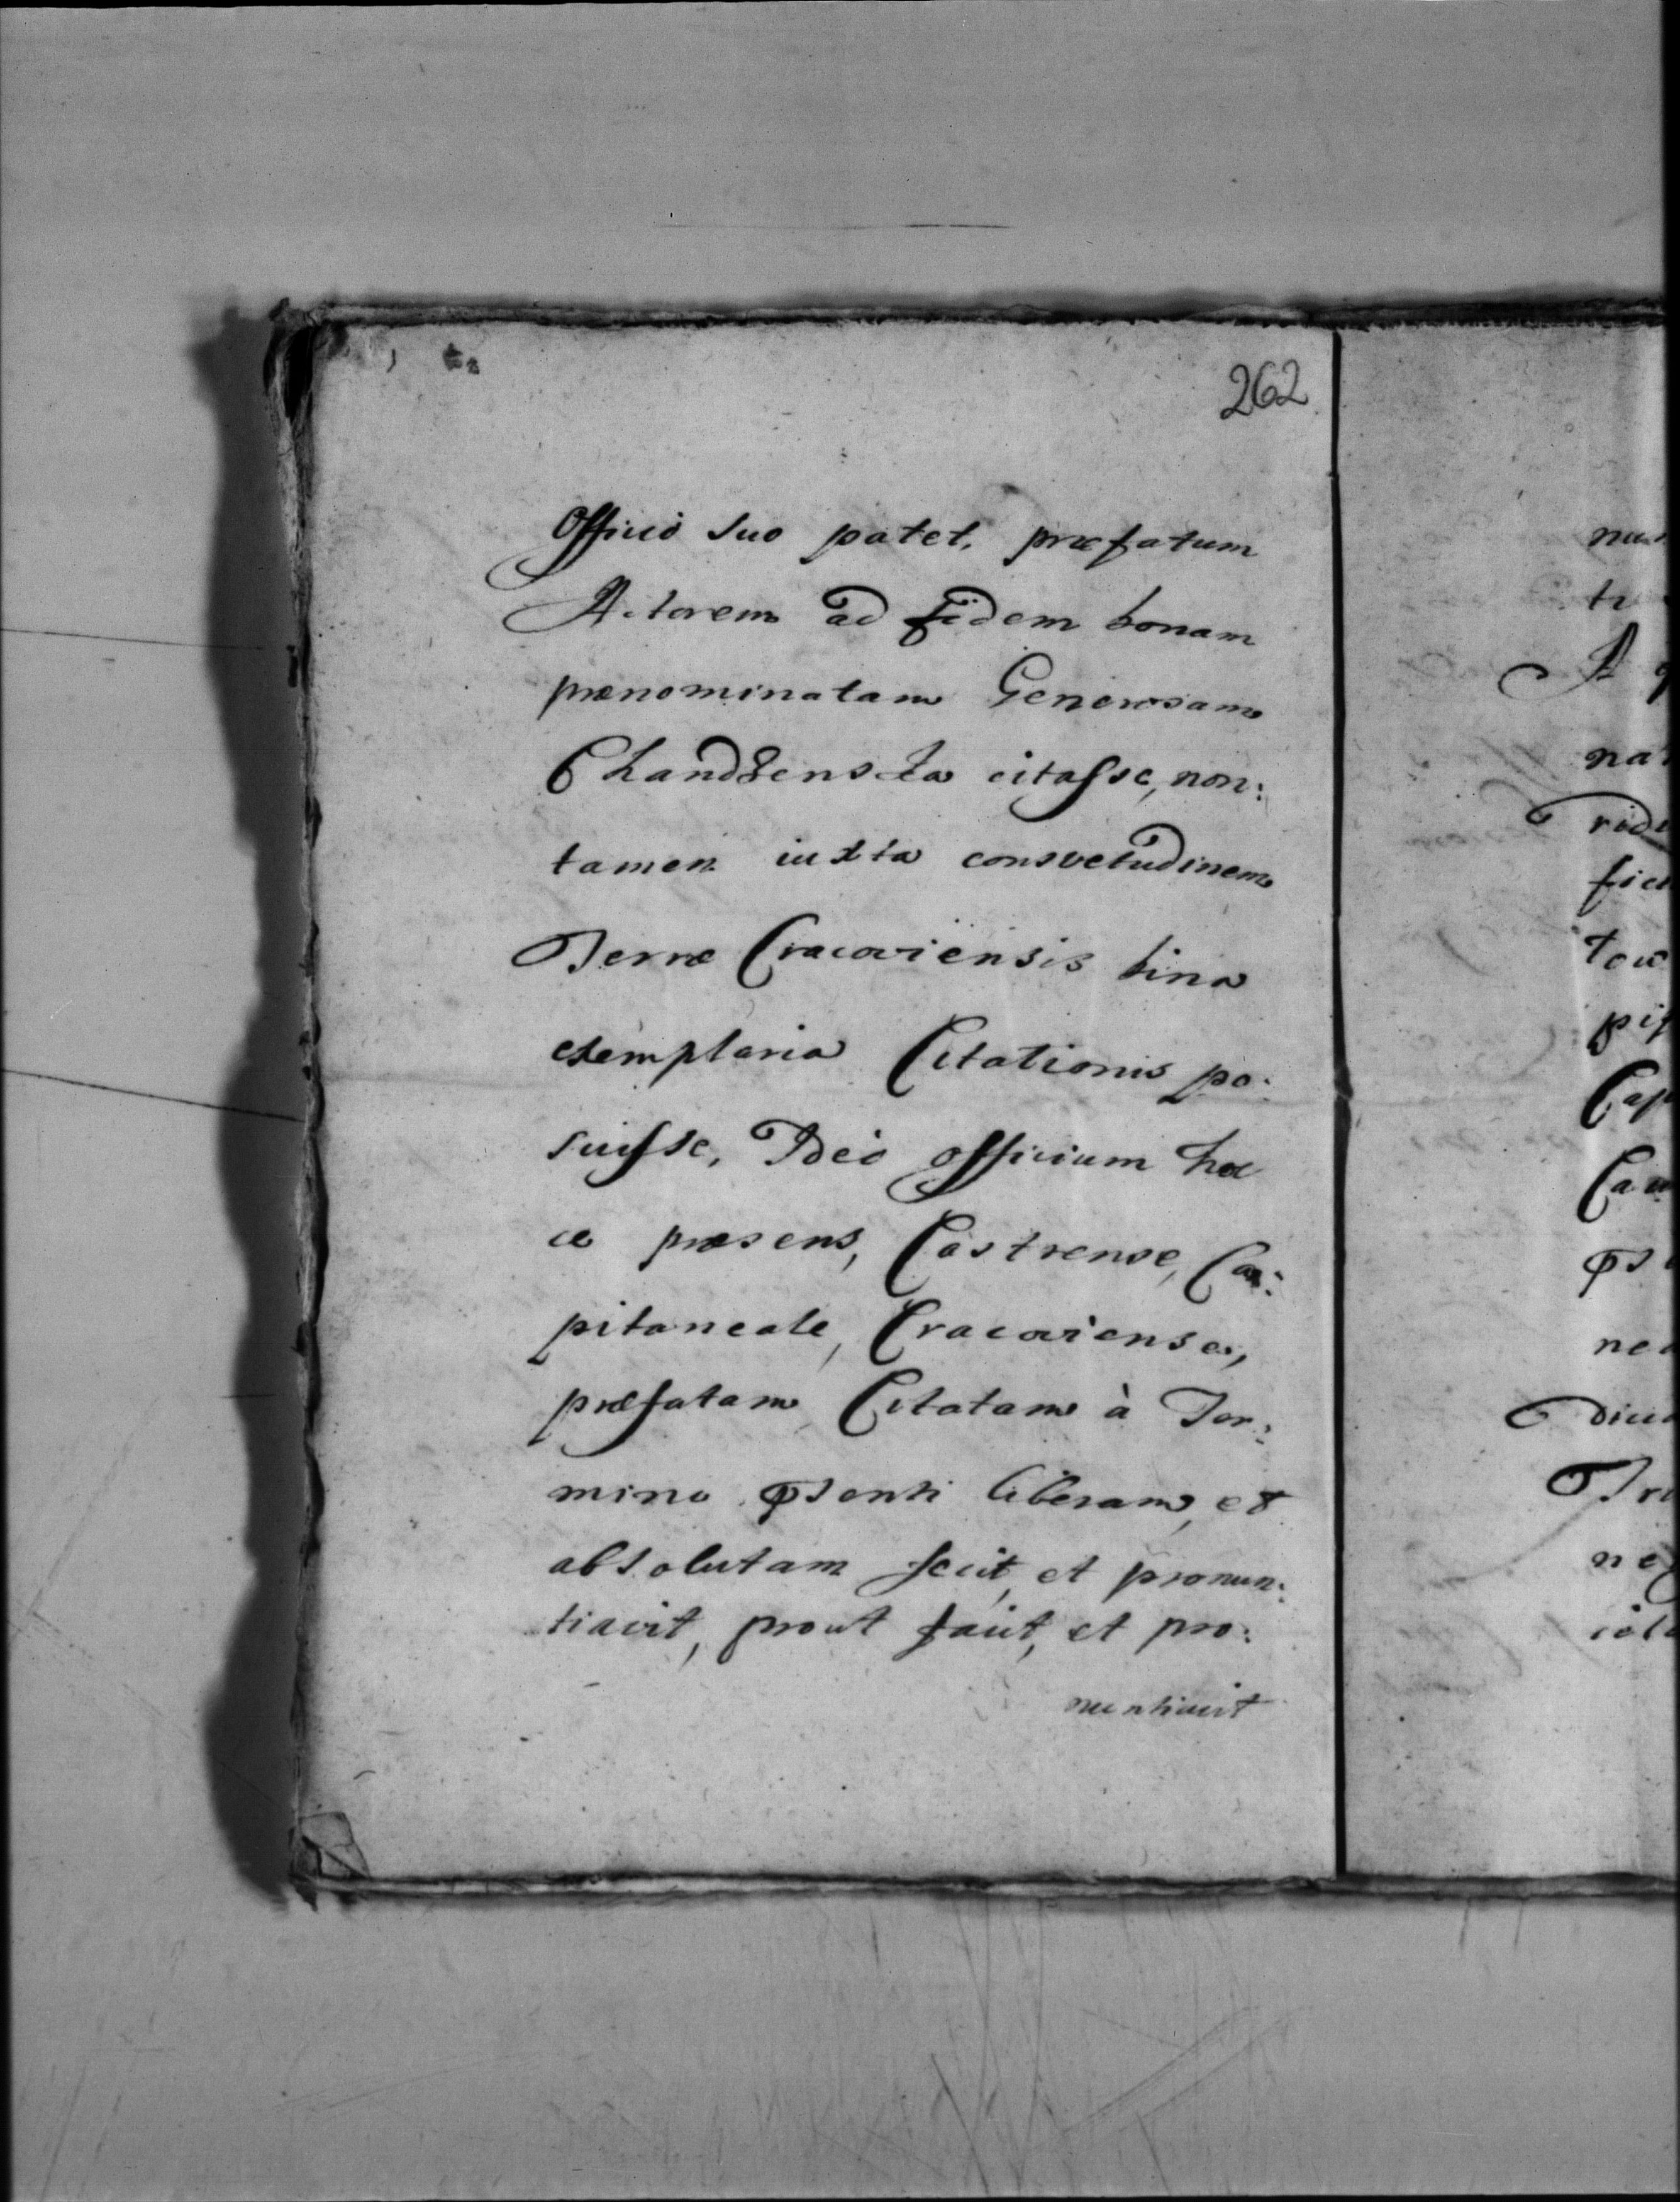 262
Officio suo patet, præfatum
Actorem ad fidem bonam
prænominatam Generosam
citasse, non:
tamen iuxta consvetudinem
Terræ Cracoviensis bina
exemplaria Citationis po:
suisse, Ideò officium hoc
ce præsens, Castrense, Ca:
pitaneale, Cracoviense,
præfatam Citatam à Ter:
mino liberam, et
absolutam fecit, et pronun:
tiavit, prout facit, et pro:
nuntiavit